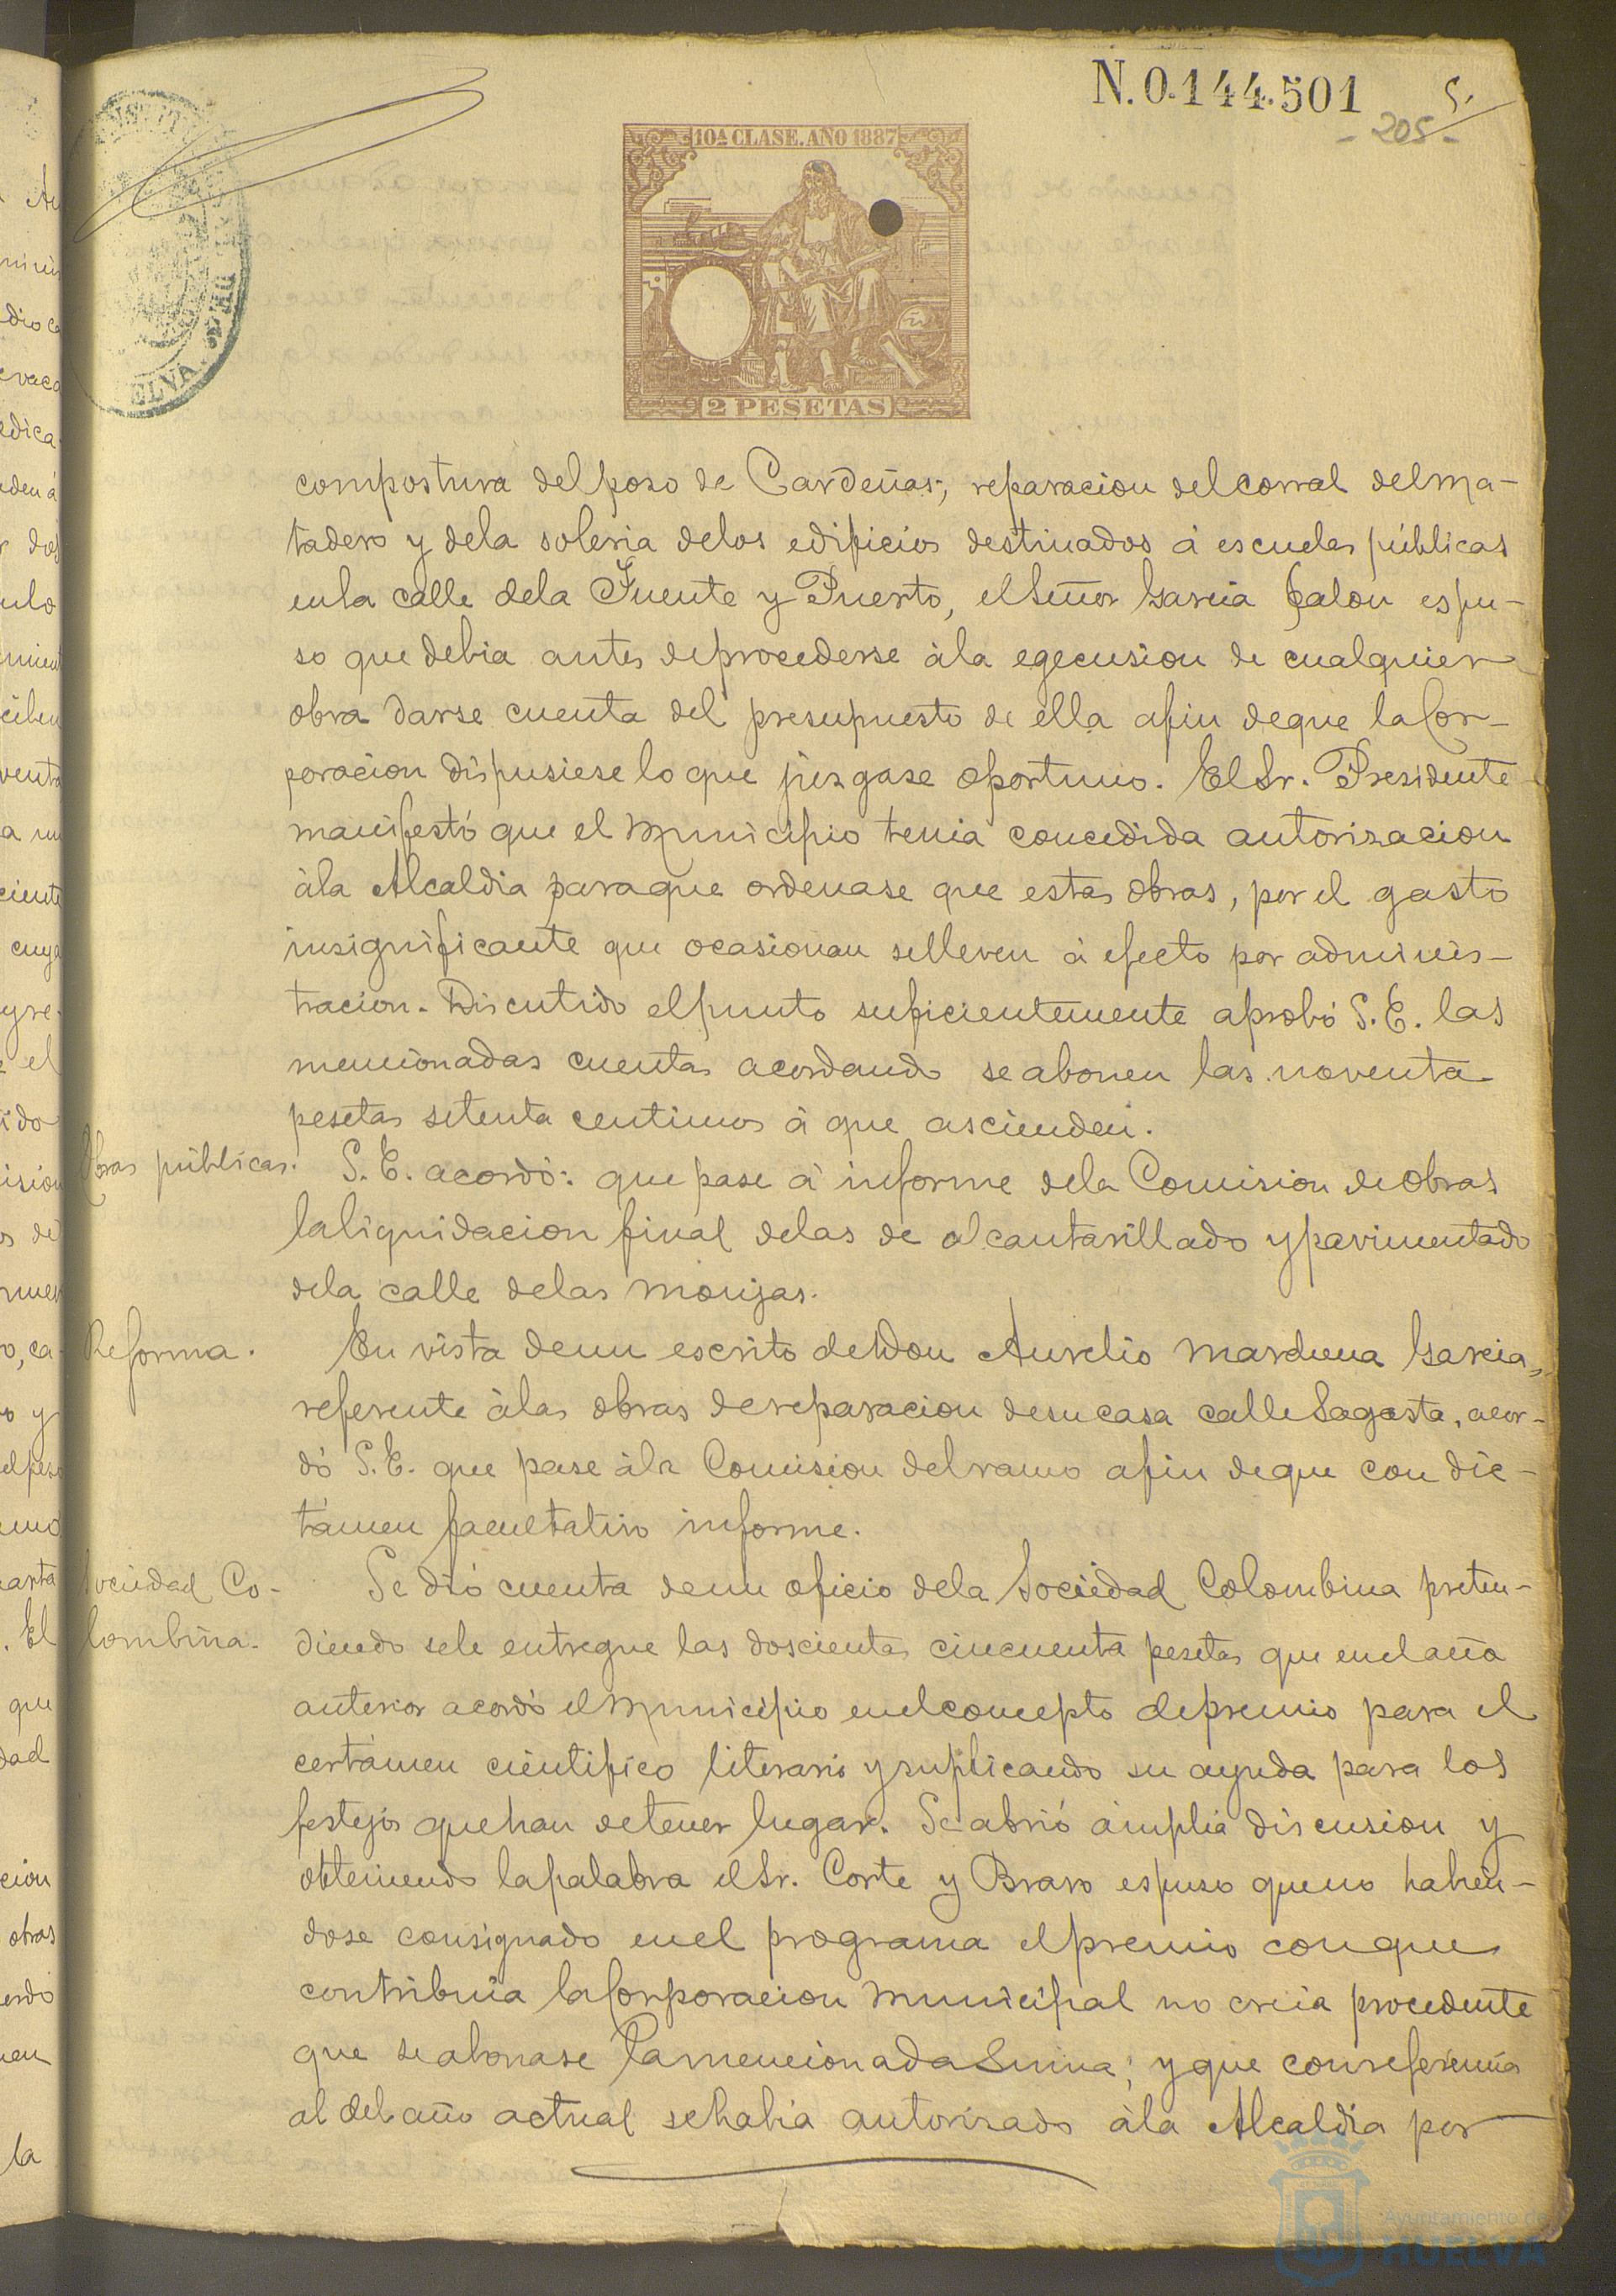 N.0.144.501
5.
- 205 -
10ª CLASE. AÑO 1887
2 PESETAS
ELVA
compostura del poso de Cardeñas; reparacion del corral del ma-
tadero y dela soleria delos edificios destinados á escuelas públicas
enla calle dela Fuente y Puerto, el Señor Garcia Jalon espu-
so que debia antes deprocederse àla egecusion de cualquier
obra darse cuenta del presupuesto de ella afin deque la Cor-
poracion dispusiese lo que jusgase oportuno. El Sr. Presidente
manifestó que el Municipio tenia concedida autorisacion
àla Alcaldia paraque ordenase que estas obras, por el gasto
insignificante que ocasionan selleven á efecto por adminis-
tracion. Discutido elpunto suficientemente aprobó S.E. las
mencionadas cuentas acordando se abonen las noventa
pesetas setenta centimos á que ascienden.
Obras públicas. S.E. acordó: que pase á informe dela Comision de Obras
laliquidacion final delas de alcantarillado y pavimentado
dela calle delas Monjas.
Reforma. En vista deun escrito de Don Aurelio Marchena Garcia,
referente àlas obras dereparacion desucasa calle Sagasta, acor-
dó S.E. que pase àla Comision delramo afin deque con dic-
támen facultativo informe.
Sociedad Co- Se dió cuenta deun oficio dela Sociedad Colombina preten-
lombina. diendo sele entregue las doscientas cincuenta pesetas que enelaño
anterior acordó el Municipio enelconcepto depremio para el
certámen cientifico literario y suplicando su ayuda para los
festejos quehan detener lugar. Se abrió ámplia discusion y
obteniendo lapalabra el Sr. Corte y Bravo espuso queno habien-
dose consignado enel programa elpremio conque
contribuia la Corporacion Municipal no creia procedente
que se abonase lamencionada Suma; y que conreferencia
al del año actual sehabia autorisado àla Alcaldia por
Ayuntamiento de
HUELVA